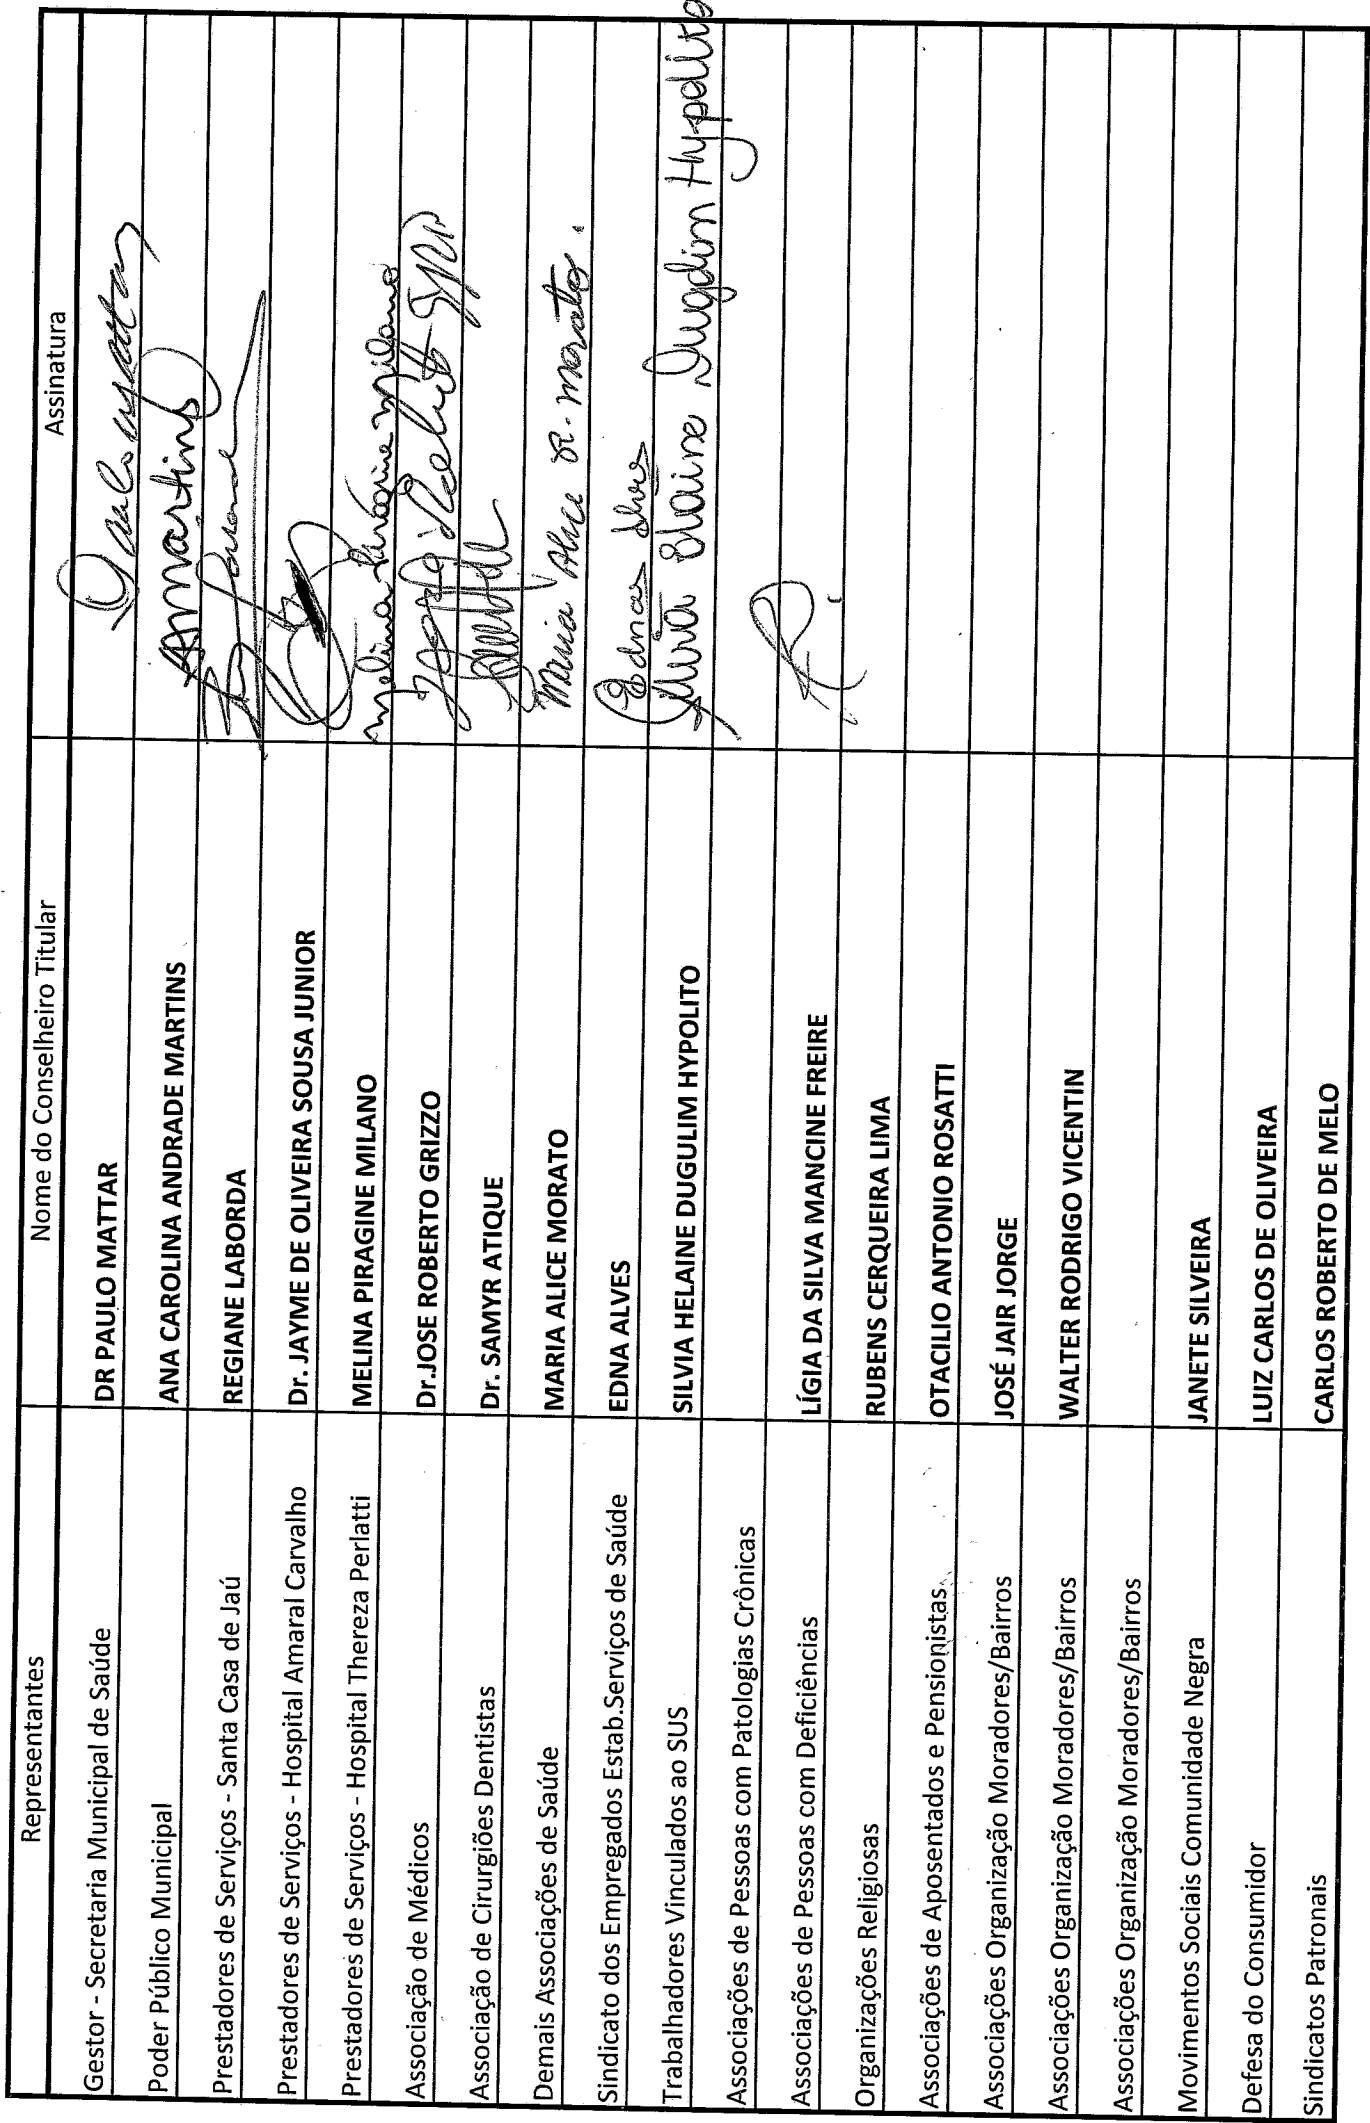 Representantes Nome do Conselheiro Titular Assinatura
Gestor - Secretaria Municipal de Saúde DR PAULO MATTAR
Poder Público Municipal ANA CAROLINA ANDRADE MARTINS AMartins
Prestadores de Serviços - Santa Casa de Jaú REGIANE LABORDA
Prestadores de Serviços - Hospital Amaral Carvalho Dr. JAYME DE OLIVEIRA SOUSA JUNIOR
Prestadores de Serviços - Hospital Thereza Perlatti MELINA PIRAGINE MILANO Melina Piragine Milano
Associação de Médicos Dr.JOSE ROBERTO GRIZZO
Associação de Cirurgiões Dentistas Dr. SAMYR ATIQUE
Demais Associações de Saúde MARIA ALICE MORATO Maria Alice R. Morato.
Sindicato dos Empregados Estab.Serviços de Saúde EDNA ALVES Edna Alves
Trabalhadores Vinculados ao SUS SILVIA HELAINE DUGULIM HYPOLITO Silvia Elaine Hypolito
Associações de Pessoas com Patologias Crônicas
Associações de Pessoas com Deficiências LÍGIA DA SILVA MANCINE FREIRE
Organizações Religiosas RUBENS CERQUEIRA LIMA
Associações de Aposentados e Pensionistas OTACILIO ANTONIO ROSATTI
Associações Organização Moradores/Bairros JOSÉ JAIR JORGE
Associações Organização Moradores/Bairros WALTER RODRIGO VICENTIN
Associações Organização Moradores/Bairros
Movimentos Sociais Comunidade Negra JANETE SILVEIRA
Defesa do Consumidor LUIZ CARLOS DE OLIVEIRA
Sindicatos Patronais CARLOS ROBERTO DE MELO